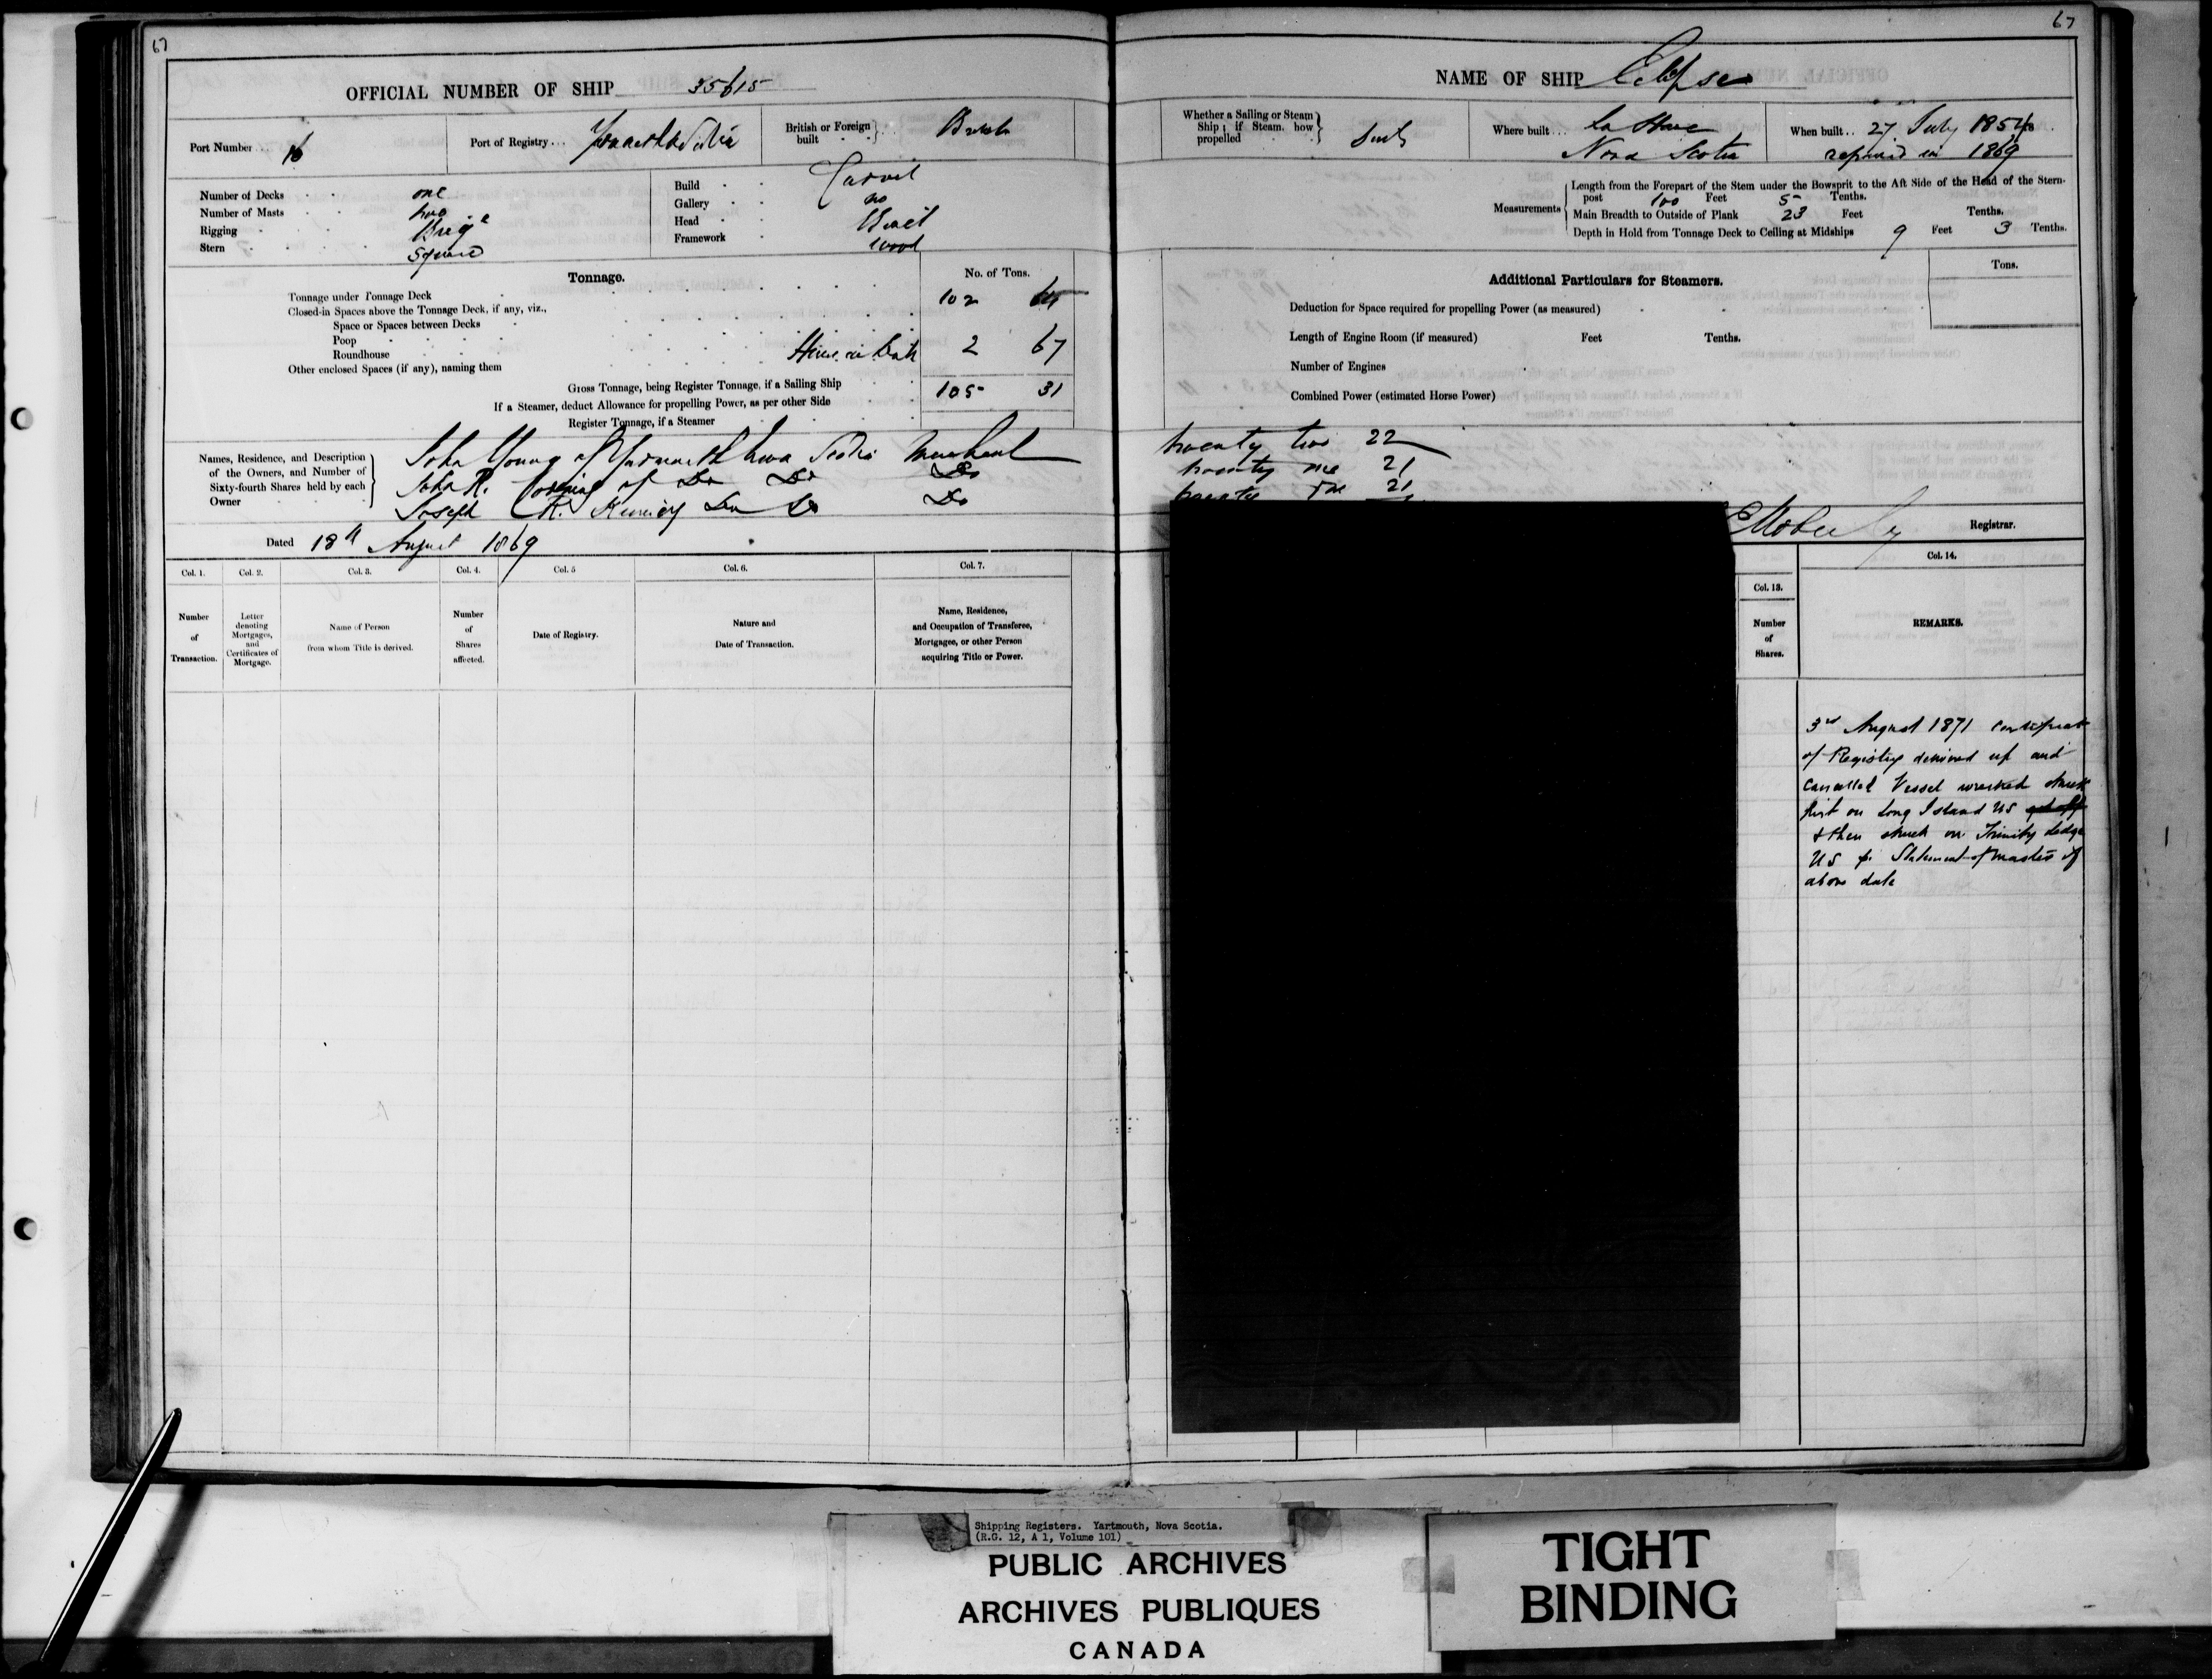 67
OFFICIAL NUMBER OF SHIP 35615
Port Number 16
Port of Registry Yarmouth N Scotia
British or Foreign built British
Number of Decks one
Number of Masts two
Rigging Brige
Stern Square
Build Carvel
Gallery no
Head Billet
Framework wood
Tonnage.
No. of Tons.
Tonnage under Tonnage Deck 102 64
Closed-in Spaces above the Tonnage Deck, if any, viz.,
Space or Spaces between Decks
Poop
Roundhouse House on Deck 2 67
Other enclosed Spaces (if any), naming them
Gross Tonnage, being Register Tonnage, if a Sailing Ship 105 31
If a Steamer, deduct Allowance for propelling Power, as per other Side
Register Tonnage, if a Steamer
Names, Residence, and Description of the Owners, and Number of Sixty-fourth Shares held by each Owner
John Young of Yarmouth Nova Scotia Merchant
John R. Corning of Do Do Do
Joseph R. Kinney Do Do Do
Dated 18th August 1869
Col. 1.
Col. 2.
Col. 3.
Col. 4.
Col. 5
Col. 6.
Col. 7.
Number of Transaction.
Letter denoting Mortgages, and Certificates of Mortgage.
Name of Person from whom Title is derived.
Number of Shares affected.
Date of Registry.
Nature and Date of Transaction.
Name, Residence, and Occupation of Transferee, Mortgagee, or other Person acquiring Title or Power.
67
NAME OF SHIP Eclipse
Whether a Sailing or Steam Ship; if Steam, how propelled Sails
Where built La Have
Nova Scotia
When built 27 July 1854
repaired in 1869
Measurements
Length from the Forepart of the Stem under the Bowsprit to the Aft Side of the Head of the Stern-
post 100 Feet 5 Tenths.
Main Breadth to Outside of Plank 23 Feet Tenths.
Depth in Hold from Tonnage Deck to Ceiling at Midships 9 Feet 3 Tenths.
Additional Particulars for Steamers.
Tons.
Deduction for Space required for propelling Power (as measured)
Length of Engine Room (if measured) Feet Tenths.
Number of Engines
Combined Power (estimated Horse Power)
twenty two 22
twenty one 21
twenty one 21
Registrar.
Col. 13.
Col. 14.
Number of Shares.
REMARKS.
3rd August 1871 Certificate
of Registry delivered up and
cancelled Vessel wrecked struck
first on Long Island US
& then struck on Trinity ledge
US pr Statement of Master of
above date
Shipping Registers. Yartmouth, Nova Scotia.
(R.G. 12, A 1, Volume 101)
PUBLIC ARCHIVES
ARCHIVES PUBLIQUES
CANADA
TIGHT
BINDING